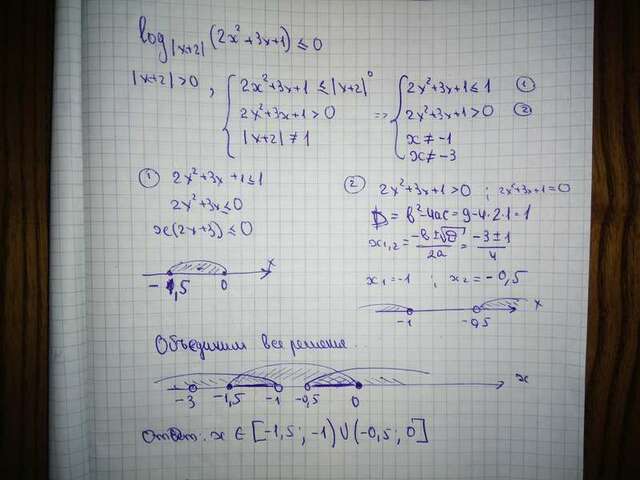 log|x+2| (2x²+3x+1) ≤ 0
|x+2|>0 , { 2x²+3x+1 ≤ |x+2|⁰ => { 2x²+3x+1 ≤ 1 ①
2x²+3x+1>0 2x²+3x+1>0 ②
|x+2| ≠ 1 x ≠ -1
x ≠ -3
① 2x²+3x+1 ≤ 1
2x²+3x ≤ 0
x(2x+3) ≤ 0
-1,5 0 x
② 2x²+3x+1>0 ; 2x²+3x+1=0
D = b²-4ac = 9-4·2·1=1
x1,2 = -b±√D / 2a = -3±1 / 4
x₁=-1 ; x₂=-0,5
-1 -0,5 x
Объединим все решения.
-3 -1,5 -1 -0,5 0 x
Ответ: x ∈ [-1,5; -1) ∪ (-0,5; 0]